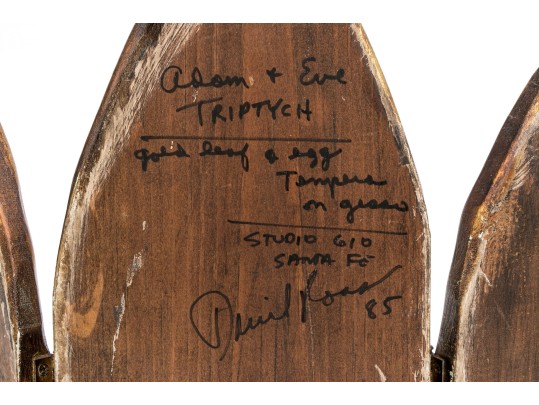 Adam + Eve
TRIPTYCH
gold leaf & egg
Tempera
on gesso
STUDIO 610
SANTA FE
David Ross
85